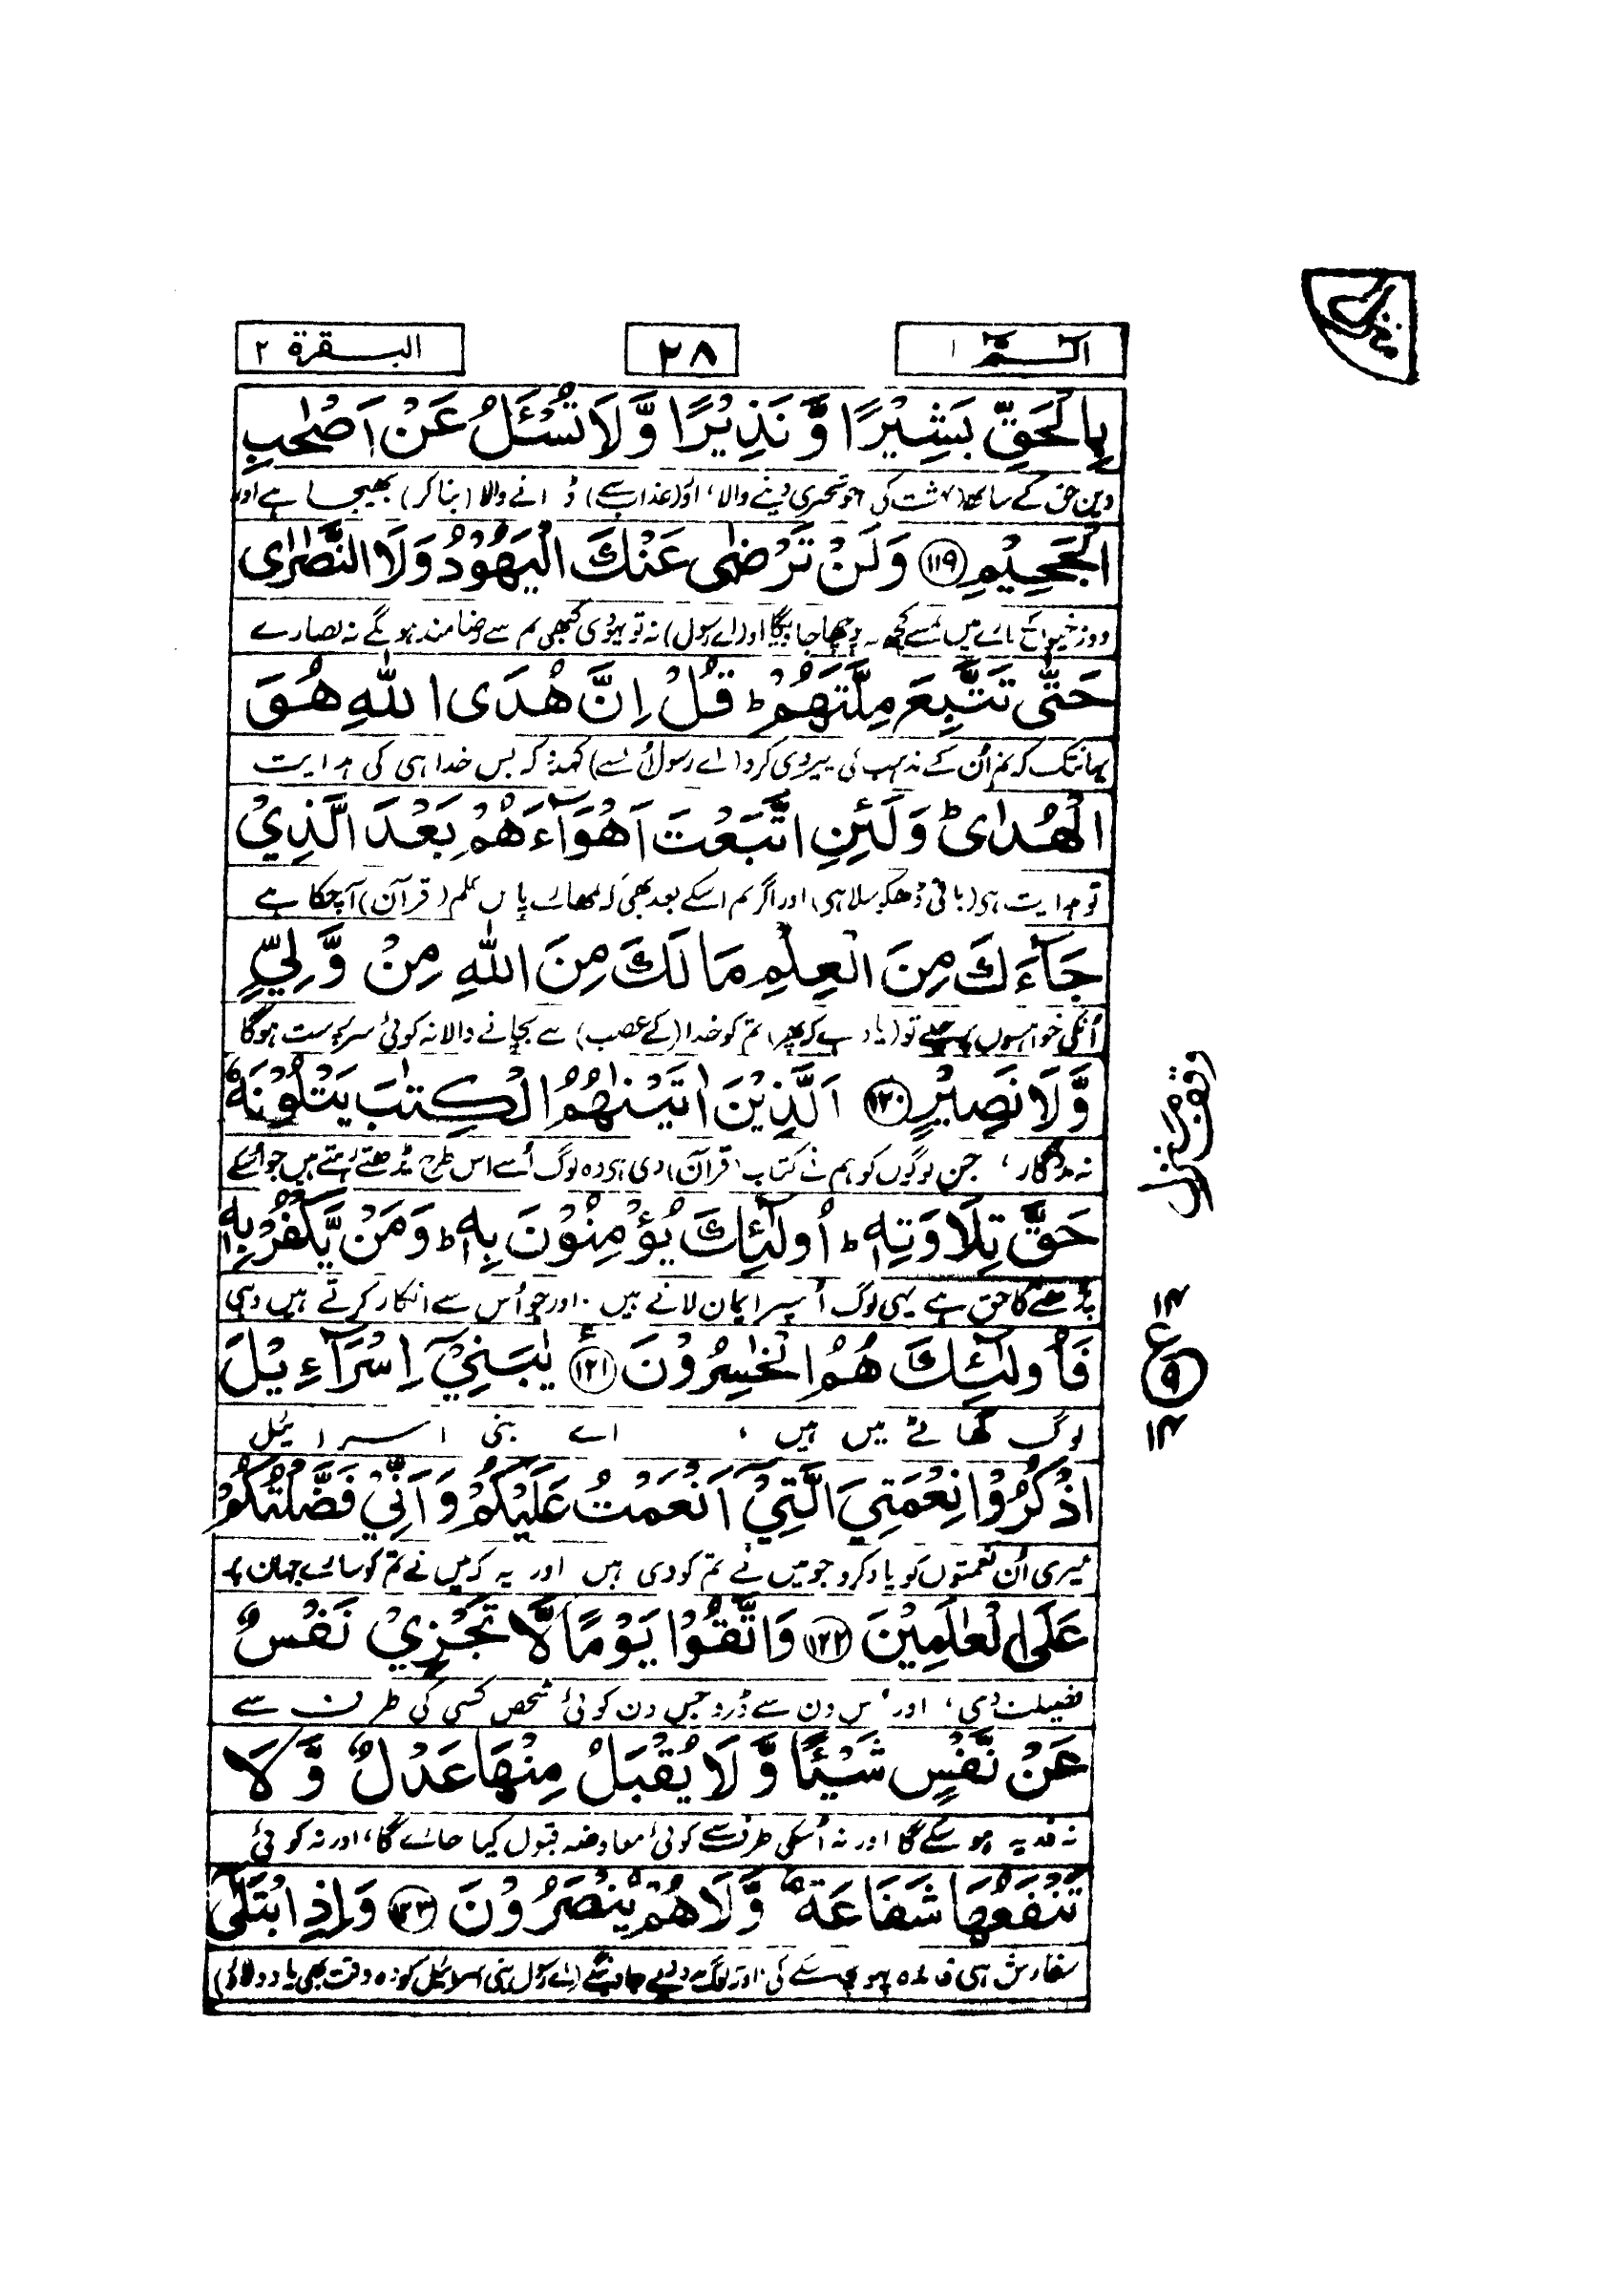 الٓمّٓ ۱
۲۸
البقرة ۲
بِالْحَقِّ بَشِيْرًا وَّ نَذِيْرًا وَّ لَا تُسْـَٔلُ عَنْ اَصْحٰبِ
دین حق کے ساتھ (بہشت کی) خوشخبری دینے والا، اور (عذاب سے) ڈرانے والا (بنا کر) بھیجا ہے اور
الْجَحِيْمِ ﴿۱۱۹﴾ وَلَنْ تَرْضٰى عَنْكَ الْيَهُوْدُ وَلَا النَّصٰرٰى
دوزخیوں کے بارے میں تم سے کچھ نہ پوچھا جائیگا اور (اے رسول) نہ تو یہودی کبھی تم سے رضامند ہونگے نہ نصارے
حَتّٰى تَتَّبِعَ مِلَّتَهُمْ ؕ قُلْ اِنَّ هُدَى اللّٰهِ هُوَ
یہانتک کہ تم اُن کے مذہب کی پیروی کرو (اے رسول اُنسے) کہدو کہ بس خدا ہی کی ہدایت
الْهُدٰى ؕ وَلَئِنِ اتَّبَعْتَ اَهْوَآءَهُمْ بَعْدَ الَّذِيْ
تو ہدایت ہی (باقی ڈھکوسلا ہی) اور اگر تم اسکے بعد بھی کہ تمھارے پاس علم (قرآن) آچکا ہے
جَآءَكَ مِنَ الْعِلْمِ مَا لَكَ مِنَ اللّٰهِ مِنْ وَّلِيٍّ
اُنکی خواہشوں پر چلے تو (یاد رہے کہ پھر) تم کو خدا (کے غضب) سے بچانے والا نہ کوئی سرپرست ہوگا
وَّلَا نَصِيْرٍ ﴿۱۲۰﴾ اَلَّذِيْنَ اٰتَيْنٰهُمُ الْكِتٰبَ يَتْلُوْنَهٗ
نہ مددگار، جن لوگوں کو ہم نے کتاب (قرآن) دی ہی وہ لوگ اُسے اس طرح پڑھتے رہتے ہیں جو اُسکے
حَقَّ تِلَاوَتِهٖ ؕ اُولٰٓئِكَ يُؤْمِنُوْنَ بِهٖ ؕ وَمَنْ يَّكْفُرْ بِهٖ
پڑھنے کا حق ہے یہی لوگ اُسپر ایمان لاتے ہیں۔ اور جو اُس سے انکار کرتے ہیں وہی
فَاُولٰٓئِكَ هُمُ الْخٰسِرُوْنَ ﴿۱۲۱﴾ يٰبَنِيْٓ اِسْرَآءِيْلَ
لوگ گھاٹے میں ہیں، اے بنی اسرائیل
اذْكُرُوْا نِعْمَتِيَ الَّتِيْٓ اَنْعَمْتُ عَلَيْكُمْ وَ اَنِّيْ فَضَّلْتُكُمْ
میری اُن نعمتوں کو یاد کرو جو میں نے تم کو دی ہیں اور یہ کہ میں نے تم کو سارے جہان پر
عَلَى الْعٰلَمِيْنَ ﴿۱۲۲﴾ وَاتَّقُوْا يَوْمًا لَّا تَجْزِيْ نَفْسٌ
فضیلت دی، اور اُس دن سے ڈرو جس دن کوئی شخص کسی کی طرف سے
عَنْ نَّفْسٍ شَيْـًٔا وَّ لَا يُقْبَلُ مِنْهَا عَدْلٌ وَّ لَا
نہ فدیہ ہو سکے گا اور نہ اُسکی طرف سے کوئی معاوضہ قبول کیا جائے گا، اور نہ کوئی
تَنْفَعُهَا شَفَاعَةٌ وَّ لَا هُمْ يُنْصَرُوْنَ ﴿۱۲۳﴾ وَاِذِ ابْتَلٰٓى
سفارش ہی فائدہ پہونچا سکے گی، اور نہ لوگ مدد دیے جائینگے (اے رسول بنی اسرائیل کو وہ وقت بھی یاد دلاؤ)
وقف منزل
۱۴
ع
۹
۱۴